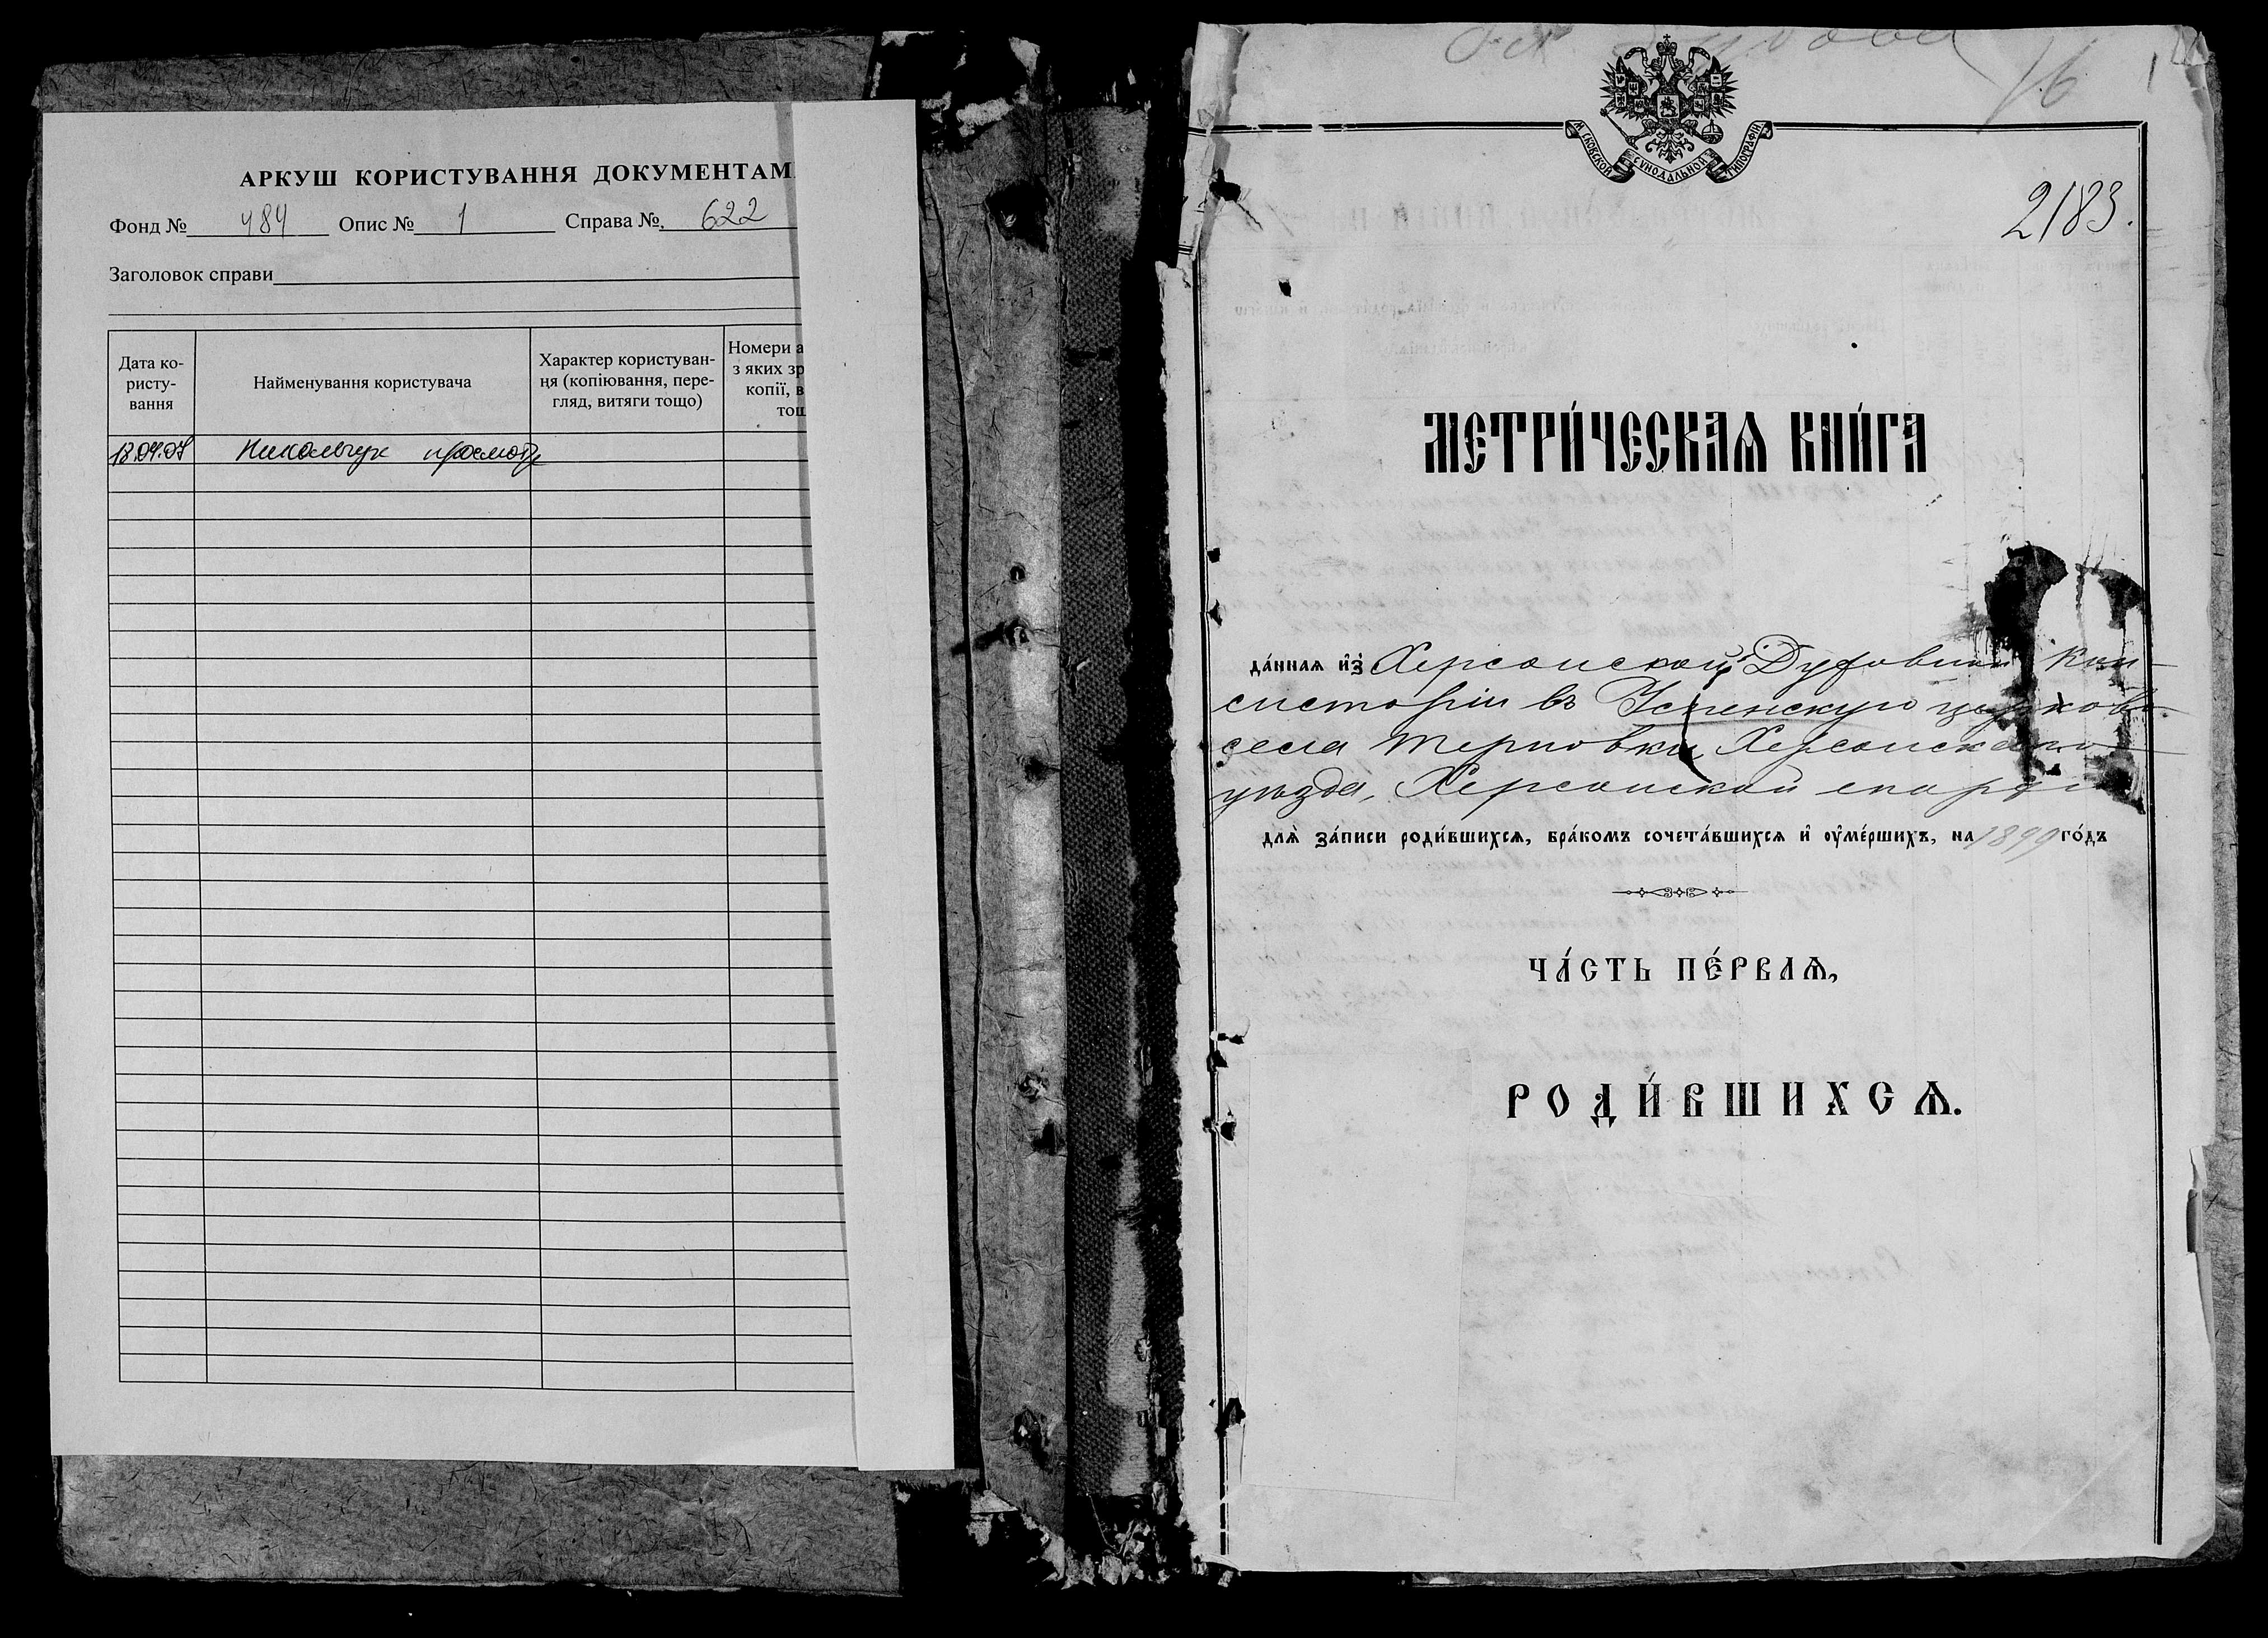 АРКУШ КОРИСТУВАННЯ ДОКУМЕНТАМ
Фонд № 484 Опис № 1 Справа №. 622
Заголовок справи
Дата ко-
ристу-
вання
Найменування користувача
Характер користуван-
ня (копіювання, пере-
гляд, витяги тощо)
Номери а
з яких зр
копії, в
тощ
13.04.07 Никольчук просмотр
16
1
М СКОВСКОЙ СѴНОДАЛЬНОЙ ТИПОГРАФІИ
2183.
МЕТРИ́ЧЕСКАѦ КНИ́ГА
да́нная и҆з̾ Херсонской Духовной Кон-
систоріи въ Успенскую церковь
села Терновки, Херсонскаго
уѣзда, Херсонской епархіи
для̀ за́писи роди́вшихся, бра́комъ сочета́вшихся и҆ оу҆ме́ршихъ, на 1899 го́дъ
ЧА́СТЬ ПЕ́РВАѦ,
РОДИ́ВШИХСѦ.